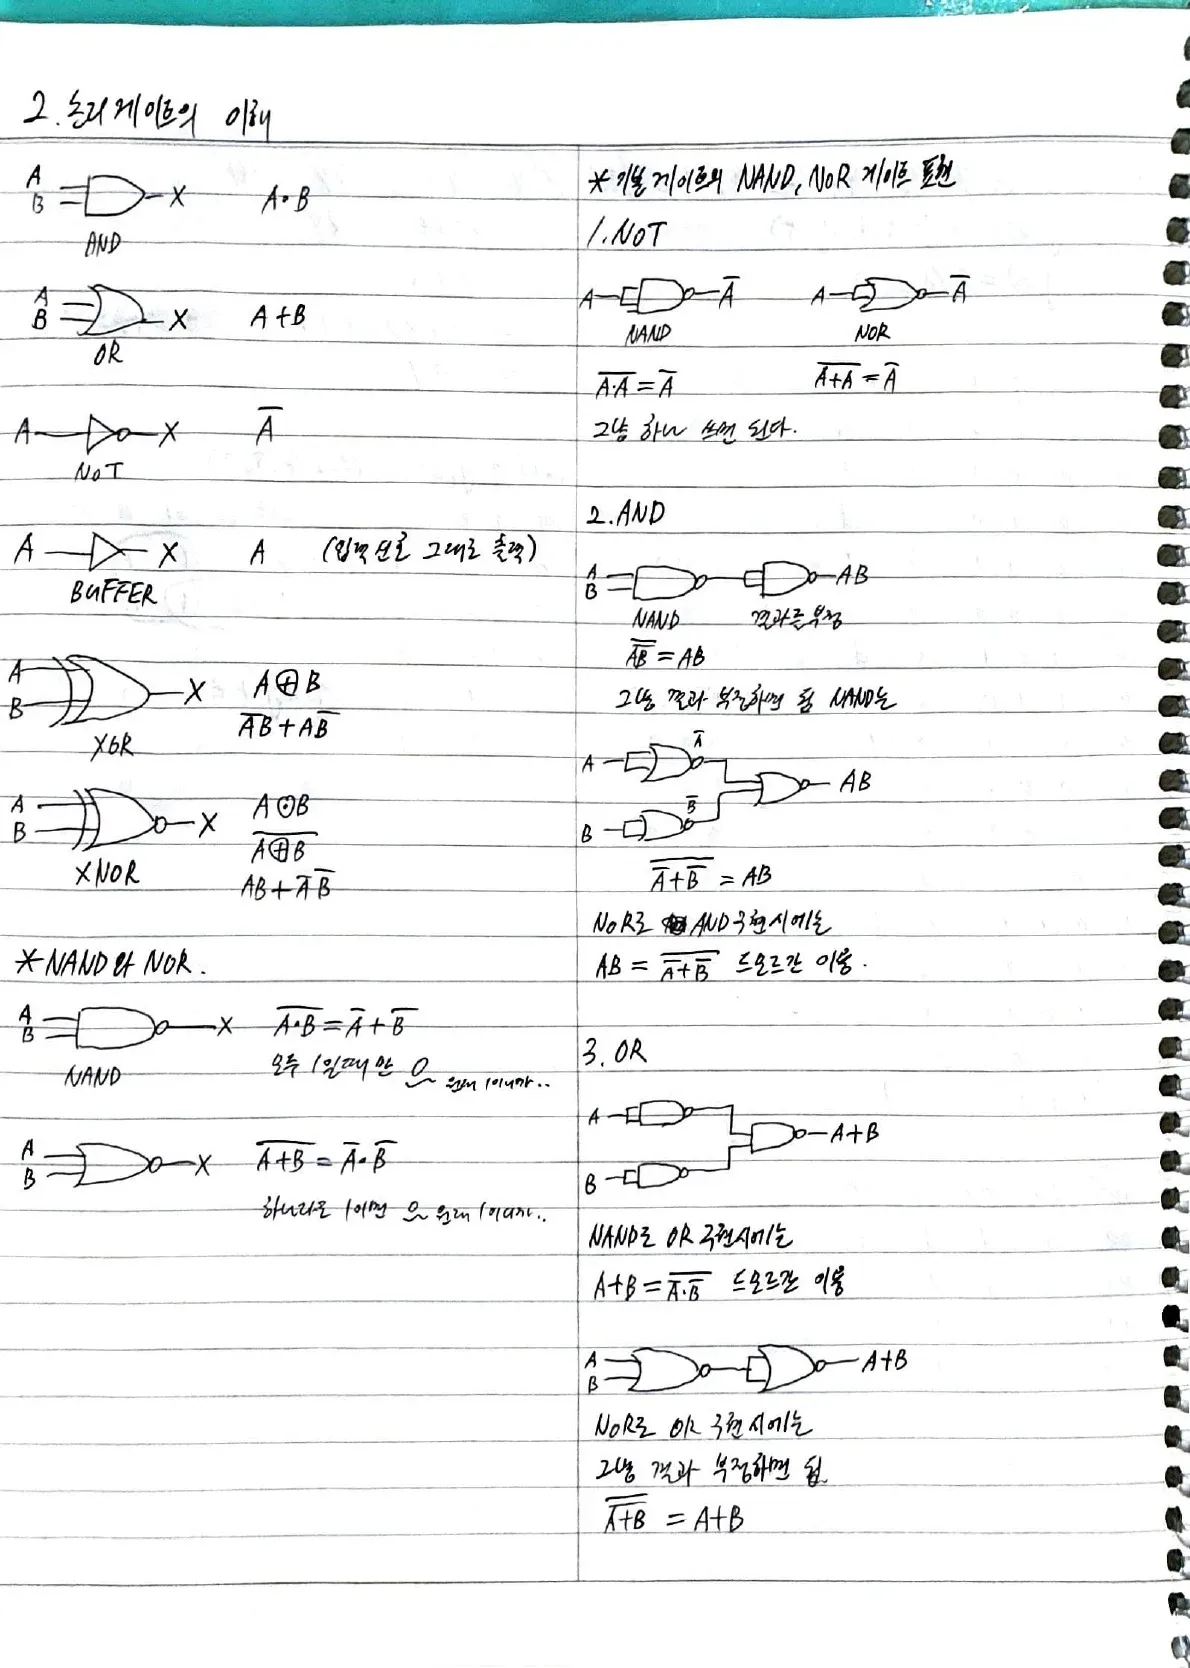 2. 논리 게이트의 이해
A
B
X
A·B
AND
A
B
X
A+B
OR
A
X
A̅
NOT
A
X
A (입력 신호 그대로 출력)
BUFFER
A
B
X
A⊕B
A̅B+AB̅
XOR
A
B
X
A⊙B
A⊕B̅
AB+A̅B̅
XNOR
*NAND와 NOR.
A
B
X
A·B̅=A̅+B̅
모두 1일때만 0 원래 1이니까..
NAND
A
B
X
A+B̅=A̅·B̅
하나라도 1이면 0 원래 1이니까..
*기본게이트의 NAND, NOR 게이트 표현
1.NOT
A A̅ A A̅
NAND NOR
A·A̅=A̅ A+A̅=A̅
그냥 하나 쓰면 된다.
2.AND
A
B
AB
NAND 결과를 부정
A̅B̅̅=AB
그냥 결과 부정하면 됨 NAND는
A A̅
AB
B B̅
A̅+B̅̅=AB
NOR로 AND구현시에는
AB=A̅+B̅̅ 드모르간 이용.
3.OR
A
A+B
B
NAND로 OR 구현시에는
A+B=A̅·B̅̅ 드모르간 이용
A
B
A+B
NOR로 OR 구현시에는
그냥 결과 부정하면 됨
A+B̅̅=A+B